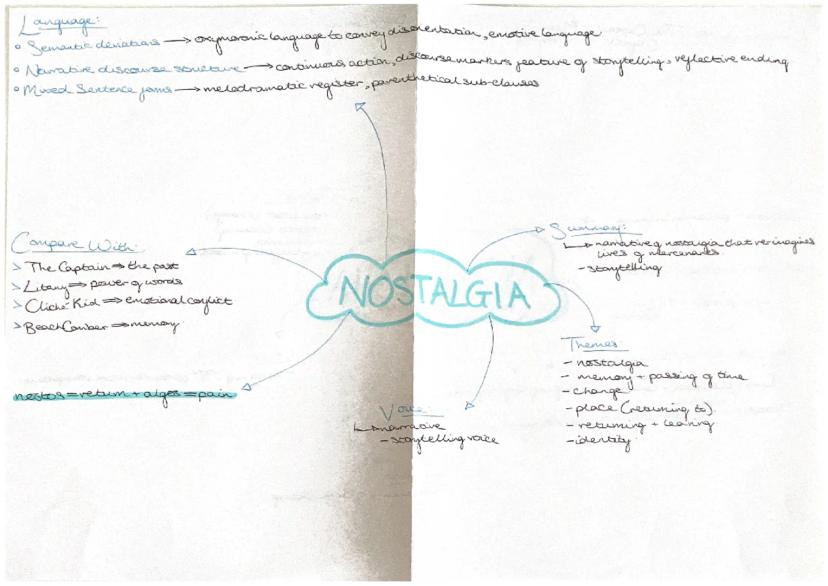 Language:
° Semantic deviations → oxymoronic language to convey disorientation, emotive language
° Narrative discourse structure → continuous action, discourse markers feature of storytelling, reflective ending
° Mixed Sentence forms → melodramatic register, parenthetical sub-clauses
Compare With:
> The Captain ⇒ the past
> Litany ⇒ power of words
> Cliché Kid ⇒ emotional conflict
> BeachComber ⇒ memory
nostos = return + algos = pain
NOSTALGIA
Summary:
↳ narrative of nostalgia that reimagines
lives of mercenaries.
- storytelling
Themes
- nostalgia
- memory + passing of time
- change
- place (returning to).
- returning + leaving
- identity
Voice
↳ narrative
- storytelling voice